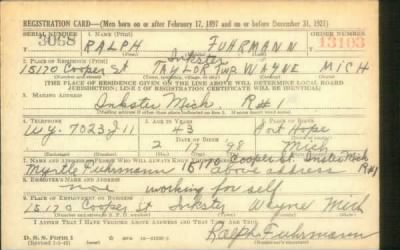 REGISTRATION CARD—(Men born on or after February 17, 1897 and on or before December 31, 1921)
SERIAL NUMBER 1. NAME (Print) ORDER NUMBER
3058 RALPH FUHRMANN 13103
2. PLACE OF RESIDENCE (Print) Inkster
15170 Cooper St TAYLOR Twp WAYNE MICH
[THE PLACE OF RESIDENCE GIVEN ON THE LINE ABOVE WILL DETERMINE LOCAL BOARD
JURISDICTION; LINE 2 OF REGISTRATION CERTIFICATE WILL BE IDENTICAL]
3. MAILING ADDRESS
Inkster Mich R#1
4. TELEPHONE 5. AGE IN YEARS 6. PLACE OF BIRTH
Wy. 7023J11 43 Port Hope
DATE OF BIRTH
2 17 98 Mich
7. NAME AND ADDRESS OF PERSON WHO WILL ALWAYS KNOW YOUR ADDRESS
Myrtle Fuhrmann 15170 Cooper St. Inkster Mich
above address R#1
8. EMPLOYER'S NAME AND ADDRESS
none working for self
9. PLACE OF EMPLOYMENT OR BUSINESS
15170 Cooper St Inkster Wayne Mich
I AFFIRM THAT I HAVE VERIFIED ABOVE ANSWERS AND THAT THEY ARE TRUE.
D. S. S. Form 1
Ralph Fuhrmann